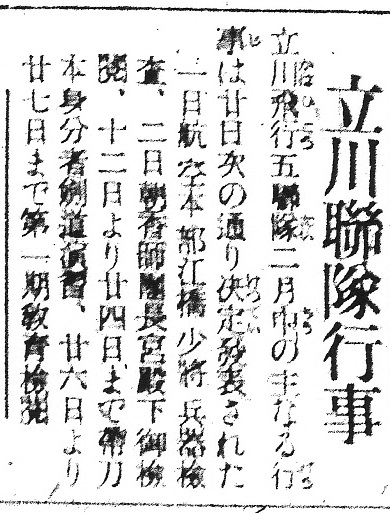 立川聯隊行事
立川飛行五聯隊二月中の主なる行
事は廿日次の通り決定発表された
一日航空本部江橋少将兵器検
査、二日朝香師団長宮殿下御検
閲、十二日より廿四日まで帯刀
本身分者剣道演習、廿六日より
廿七日まで第一期教育検閲